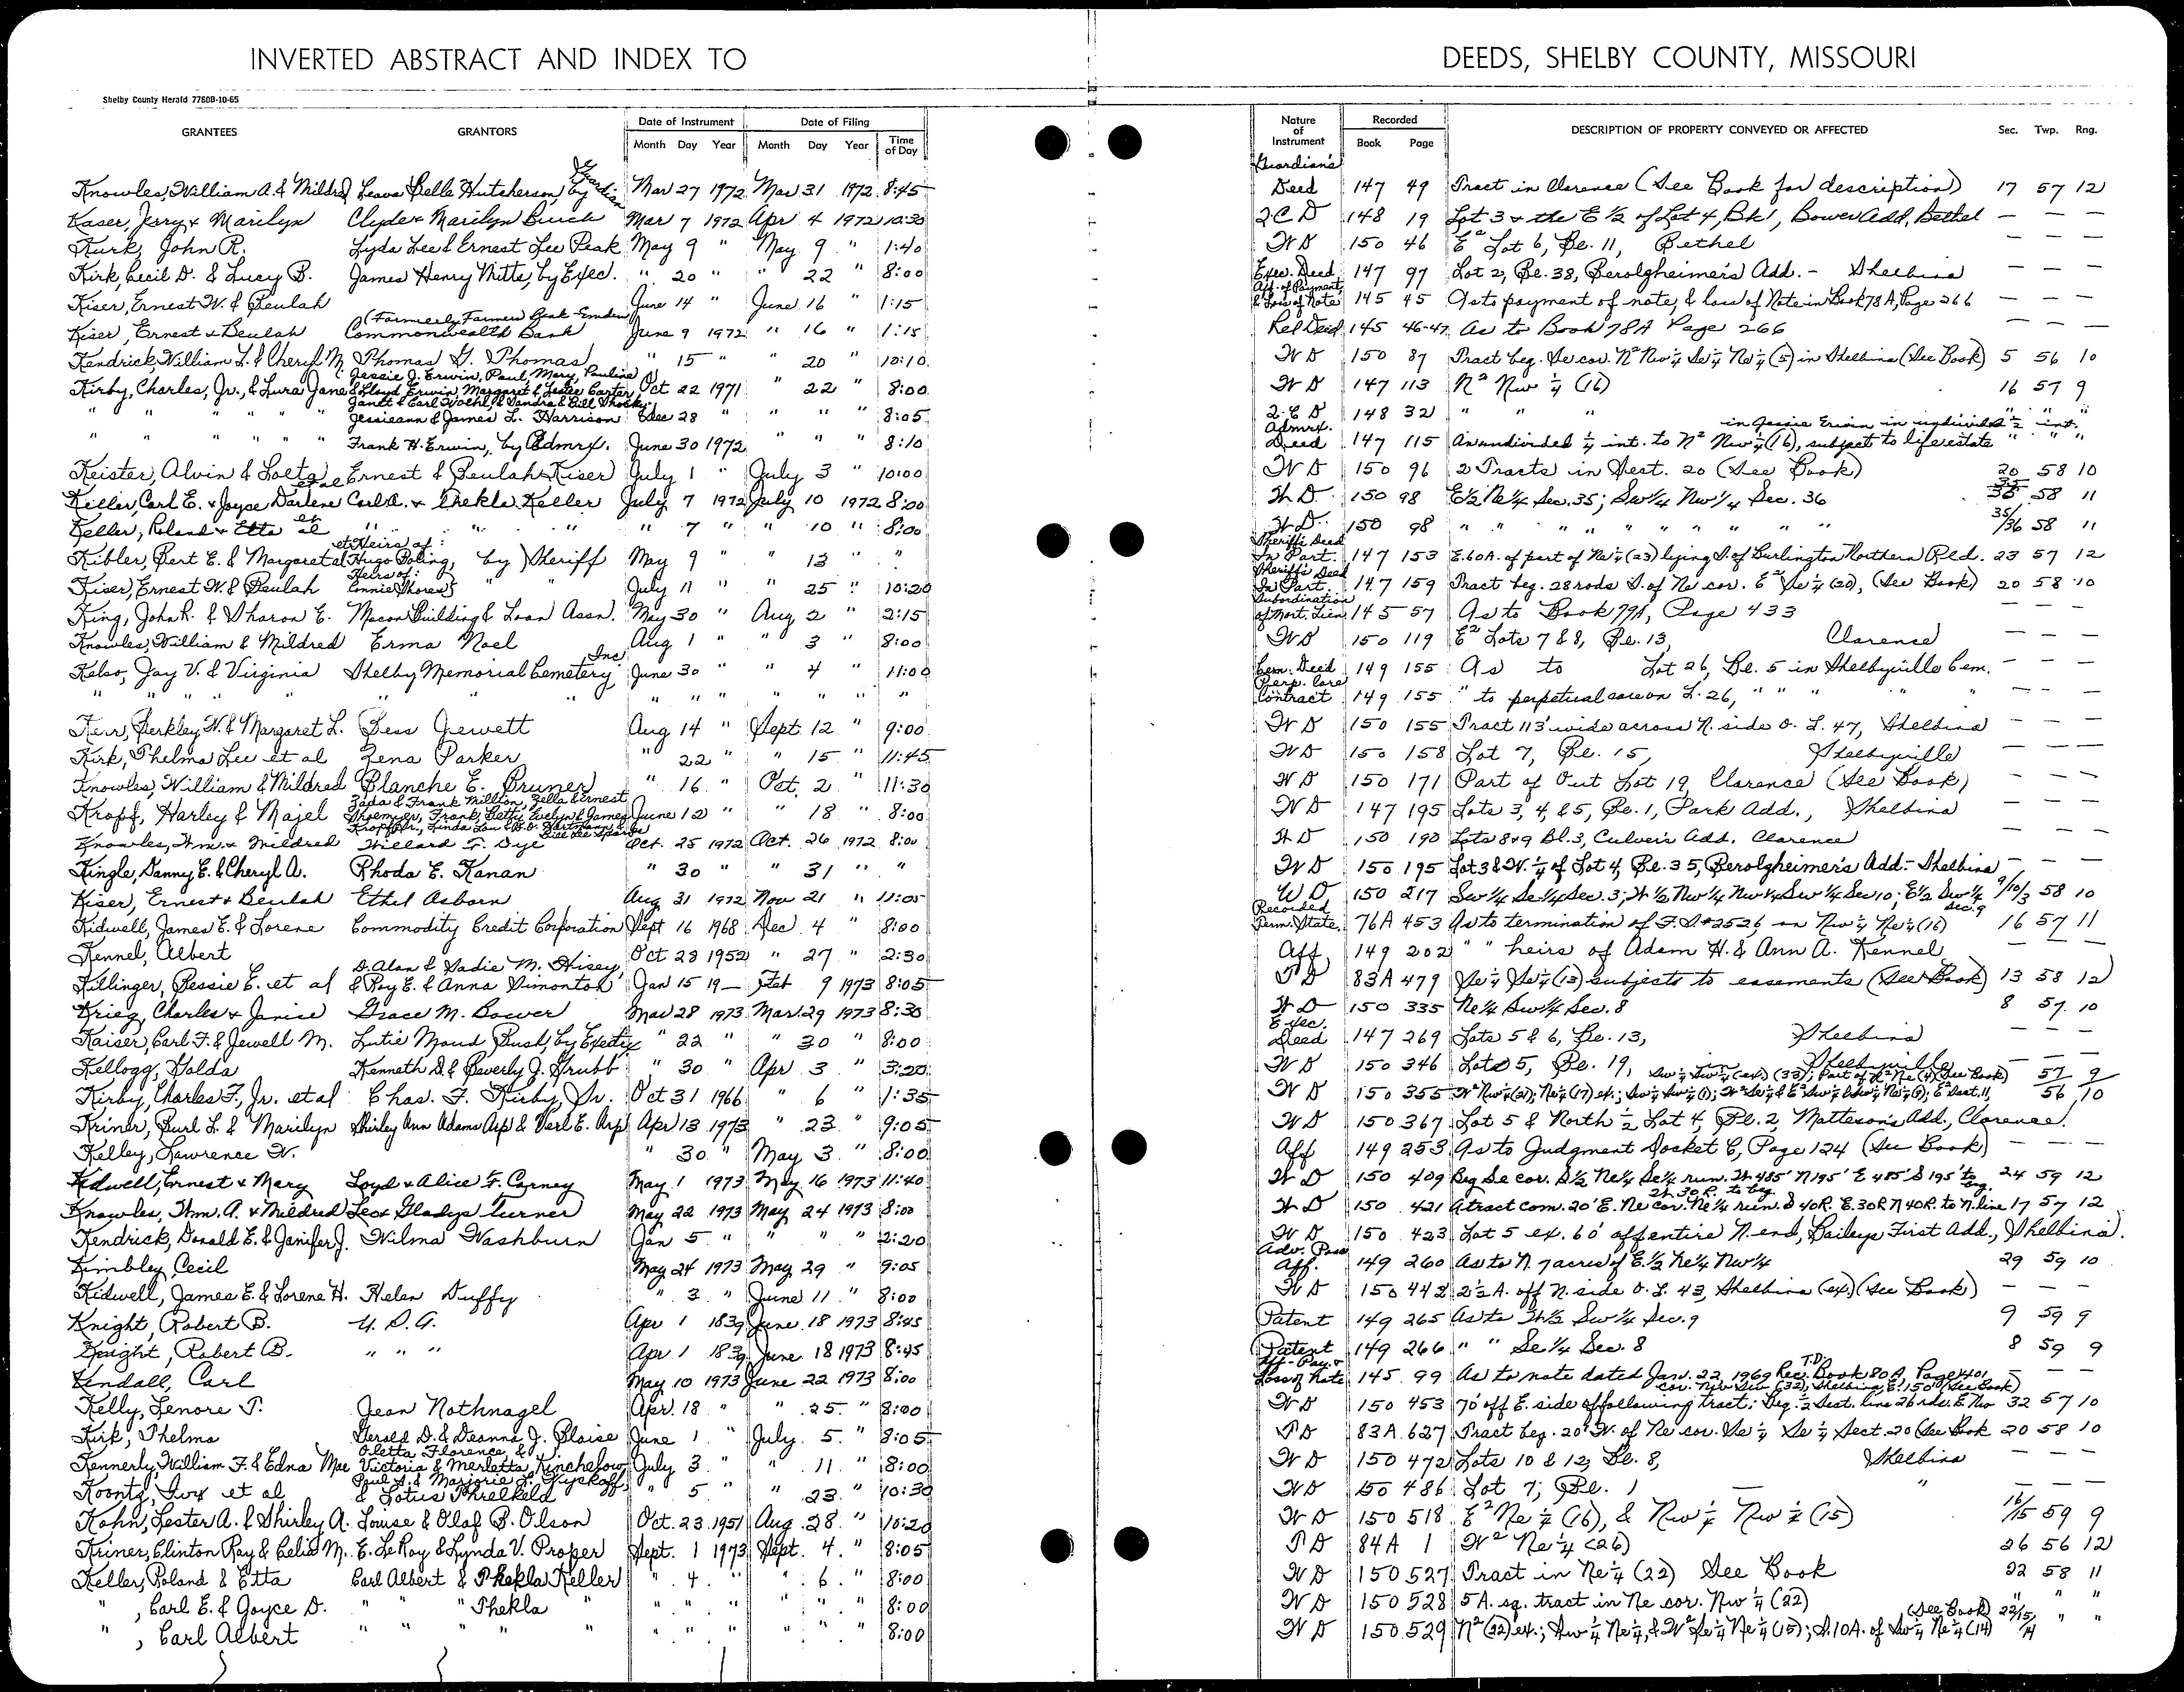 INVERTED ABSTRACT AND INDEX TO DEEDS, SHELBY COUNTY, MISSOURI
Shelby County Herald 7780B-10-65
GRANTEES GRANTORS Date of Instrument Date of Filing Time of Day Nature of Instrument Recorded DESCRIPTION OF PROPERTY CONVEYED OR AFFECTED Sec. Twp. Rng.
Month Day Year Month Day Year Book Page
Knowles, William A. & Mildred Leava Belle Hutcherson, by Guardian Mar 27 1972 Mar 31 1972 8:45 Guardian's Deed 147 49 Tract in Clarence (See Book for description) 17 57 12
Kaser, Jerry & Marilyn Clyde & Marilyn Buick Mar 7 1972 Apr 4 1972 10:30 Q.C D 148 19 Lot 3 & the E 1/2 of Lot 4, Bk 1, Bower Add, Bethel — — —
Kurk, John R. Lyda Lee & Ernest Lee Peak May 9 " May 9 " 1:40 W D 150 46 E² Lot 6, Bl. 11, Bethel — — —
Kirk, Cecil D. & Lucy B. James Henry Mitts, by Exec. " 20 " " 22 " 8:00 Exec. Deed 147 97 Lot 2, Bl. 38, Berolgheimer's Add. - Shelbina — — —
Kiser, Ernest W. & Beulah June 14 " June 16 " 1:15 Aff. of Payment & Loss of Note 145 45 As to payment of note, & loss of Note in Book 78 A, Page 266 — — —
Kiser, Ernest & Beulah (Formerly Farmers Bank-Emden Commonwealth Bank June 9 1972 " 16 " 1:15 Rel Deed 145 46-47 As to Book 78A Page 266 — — —
Kendrick, William L. & Cheryl M. Thomas G. Thomas " 15 " " 20 " 10:10 W D 150 87 Tract beg. Se cor. N² Nw¼ Se¼ Ne¼ (5) in Shelbina (See Book) 5 56 10
Kirby, Charles, Jr., & Lura Jane Jessie J. Erwin, Paul, Mary, Pauline & Lloyd Erwin, Margaret & Leslie Carter, Janet & Carl & Sandra & Bill Oct 22 1971 " 22 " 8:00 W D 147 113 N² Nw ¼ (16) 16 57 9
" " " " " Jessieann & James L. Harrison Dec 28 " " " " 8:05 Q.C D 148 32 " " " " " "
" " " " " Frank H. Erwin, by Admrx. June 30 1972 " " " 8:10 Admrx. Deed 147 115 An undivided ¼ int. to N² Nw¼ (16), subject to life estate in Jessie Erwin in undivided ½ int. " " "
Keister, Alvin & Loeta Ernest & Beulah Kiser July 1 " July 3 " 10:00 W D 150 96 2 Tracts in Sect. 20 (See Book) 20 58 10
Keller, Carl E. & Joyce Darlene et al Carl A. & Thekla Keller July 7 1972 July 10 1972 8:00 W. D. 150 98 E½ Ne¼ Sec. 35; Sw¼ Nw¼ Sec. 36 35/36 58 11
Keller, Roland & Etta et al " " " " 7 " " 10 " 8:00 W. D. 150 98 " " " " " " " " " 35/36 58 11
Kibler, Bert E. & Margaret et al Heirs of: Hugo Poling, by Sheriff May 9 " " 13 " " Sheriff's Deed In Part. 147 153 E. 60A. of part of Ne¼ (23) lying S of Burlington Northern Rld. 23 57 12
Kiser, Ernest W. & Beulah Heirs of: Connie " " July 11 " " 25 " 10:20 Sheriff's Deed In Part. 147 159 Tract beg. 28 rods S. of Ne cor. E² Se¼ (20), (See Book) 20 58 10
King, John R. & Sharon E. Macon Building & Loan Assn. May 30 " Aug 2 " 2:15 Subordination of Mort. Lien 145 57 As to Book 79A, Page 433 — — —
Knowles, William & Mildred Erma Noel Aug 1 " " 3 " 8:00 W D 150 119 E² Lots 7 & 8, Bl. 13, Clarence — — —
Kelso, Jay V. & Virginia Shelby Memorial Cemetery Inc June 30 " " 4 " 11:00 Cem. Deed 149 155 As to Lot 26, Bl. 5 in Shelbyville Cem. — — —
" " " " " " " " " " " " " Perp. Care Contract 149 155 " to perpetual care on L. 26, " " " " " — — —
Kerr, Berkley W. & Margaret L. Bess Jewett Aug 14 " Sept. 12 " 9:00 W D 150 155 Tract 113' wide across N. side O. L. 47, Shelbina — — —
Kirk, Thelma Lee et al Zena Parker " 22 " " 15 " 11:45 W D 150 158 Lot 7, Bl. 15, Shelbyville — — —
Knowles, William & Mildred Blanche E. Pruner " 16 " Oct. 2 " 11:30 W D 150 171 Part of Out Lot 19, Clarence (See Book) — — —
Kropf, Harley & Majel Zada & Frank Million, Zella & Ernest Frank, Betty, Evelyn & James Kropf Jr., Linda Lou & B.G. Hartmann & Bill Lee June 12 " " 18 " 8:00 W D 147 195 Lots 3, 4, & 5, Bl. 1, Park Add., Shelbina — — —
Knowles, Wm. & Mildred Willard F. Dye Oct. 25 1972 Oct. 26 1972 8:00 W D 150 190 Lots 8 & 9 Bl. 3, Culver's Add. Clarence — — —
Kingle, Danny E. & Cheryl A. Rhoda E. Kanan " 30 " " 31 " " W D 150 195 Lot 3 & W. ¼ of Lot 4, Bl. 35, Berolgheimer's Add. - Shelbina — — —
Kiser, Ernest & Beulah Ethel Asborn Aug 31 1972 Nov 21 " 11:05 W D 150 217 Sw¼ Se¼ Sec. 3; W ½ Nw¼ Nw¼ Sw¼ Sec 10; E½ Sw¼ Sec. 9 9/10/3 58 10
Kidwell, James E. & Lorene Commodity Credit Corporation Sept 16 1968 Dec. 4 " 8:00 Recorded Term. State. 76A 453 As to termination of F.S. #2526 on Nw¼ Ne¼ (16) 16 57 11
Kennel, Albert Oct 28 1952 " 27 " 2:30 Aff. 149 202 " " heirs of Adam H. & Ann A. Kennel — — —
Killinger, Bessie E. et al D. Alan & Sadie M. Hisey, & Roy E. & Anna Simonton Jan 15 19— Feb 9 1973 8:05 T D 83A 479 Se¼ Se¼ (13) subjects to easements (See Book) 13 58 12
Krieg, Charles & Janice Grace M. Bower Mar 28 1973 Mar. 29 1973 8:30 W D 150 335 Ne¼ Sw¼ Sec. 8 8 57 10
Kaiser, Carl F. & Jewell M. Lutie Maud Bush, by Exetrx " 22 " " 30 " 8:00 Exec. Deed 147 269 Lots 5 & 6, Bl. 13, Shelbina — — —
Kellogg, Golda Kenneth D. & Beverly J. Grubb " 30 " Apr 3 " 3:20 W D 150 346 Lots 5, Bl. 19, Shelbyville — — —
Kirby, Charles F., Jr. et al Chas. F. Kirby, Sr. Oct 31 1966 " 6 " 1:35 W D 150 355 57 9 56 10
Kriner, Burl L. & Marilyn Shirley Ann Adams Arp & Verl E. Arp Apr 13 1973 " 23 " 9:05 W D 150 367 Lot 5 & North ½ Lot 4, Bl. 2, Matteson's Add., Clarence.
Kelley, Lawrence W. " 30 " May 3 " 8:00 Aff 149 253 As to Judgment Docket C, Page 124 (See Book) — — —
Kidwell, Ernest & Mary Loyd & Alice F. Carney May 1 1973 May 16 1973 11:40 W D 150 409 Beg Se cor. S½ Ne¼ Se¼ run. W 485' N 195' E 485' S 195' to beg. 24 59 12
Knowles, Wm. A. & Mildred Leo & Gladys Turner May 22 1973 May 24 1973 8:00 W D 150 421 A tract com. 20' E. Ne cor. Ne¼ run. S 40R. E. 30R N 40R. to N. line W 30R. to beg. 17 57 12
Kendrick, Donald E. & Jenifer J. Wilma Washburn Jan 5 " " " " 2:20 W D 150 423 Lot 5 ex. 60' off entire N. end, Baileys First Add., Shelbina.
Kimbley, Cecil May 24 1973 May 29 " 9:05 Adv. Poss Aff. 149 260 As to N. 7 acres of E. ½ Ne¼ Nw¼ 29 59 10
Kidwell, James E. & Lorene H. Helen Duffy " 3 " June 11 " 8:00 W D 150 442 2½ A. off N. side O. L. 43, Shelbina (ex.) (See Book) — — —
Knight, Robert B. U. S. A. Apr 1 1839 June 18 1973 8:45 Patent 149 265 As to W½ Sw¼ Sec. 9 9 59 9
Knight, Robert B. " " " Apr 1 1839 June 18 1973 8:45 Patent 149 266 " " Se¼ Sec. 8 8 59 9
Kendall, Carl May 10 1973 June 22 1973 8:00 Aff-Pay. & Loss of Note 145 99 As to note dated Jan. 22, 1969 Rec. T.D. Book 80 A, Page 401 — — —
Kelly, Lenore T. Jean Nothnagel Apr. 18 " " 25 " 8:00 W D 150 453 70' off E. side of following tract: Beg. ½ Sect. line 26 rds. E. Nw cor. Nw Sw (32), Shelbina E. 150' (See Book) 32 57 10
Kirk, Thelma Gerald D. & Deanna J. Blaise June 1 " July 5 " 8:05 T D 83A 627 Tract beg. 20' W. of Ne cor. Se¼ Se¼ Sect. 20 (See Book 20 58 10
Kennerly, William F. & Edna Mae Oletta, Florence, & Victoria & Merletta Kinchelow July 3 " " 11 " 8:00 W D 150 472 Lots 10 & 12, Bl. 8, Shelbina — — —
Koontz, et al Paul S. & Marjorie L. Wyckoff, & Lotus Threlkeld " 5 " " 23 " 10:30 W D 150 486 Lot 7, Bl. 1 — " — —
Kohn, Lester A. & Shirley A. Louise & Olaf B. Olson Oct. 23 1951 Aug. 28 " 10:20 W D 150 518 E² Ne ¼ (16), & Nw ¼ Nw ¼ (15) 16/15 59 9
Kriner, Clinton Ray & Celia M. E. LeRoy & Lynda V. Proper Sept. 1 1973 Sept. 4 " 8:05 T D 84A 1 W² Ne¼ (26) 26 56 12
Keller, Roland & Etta Carl Albert & Thekla Keller " 4 " " 6 " 8:00 W D 150 527 Tract in Ne¼ (22) See Book 22 58 11
" , Carl E. & Joyce D. " " " Thekla " " " " " " 8:00 W D 150 528 5 A. sq. tract in Ne cor. Nw ¼ (22) " " "
" , Carl Albert " " " " " " " " " " 8:00 W D 150 529 N² (22) ex.; Sw¼ Ne¼, & W² Se¼ Ne¼ (15); S. 10A. of Sw¼ Ne¼ (14) (See Book) 22/15/14 " "